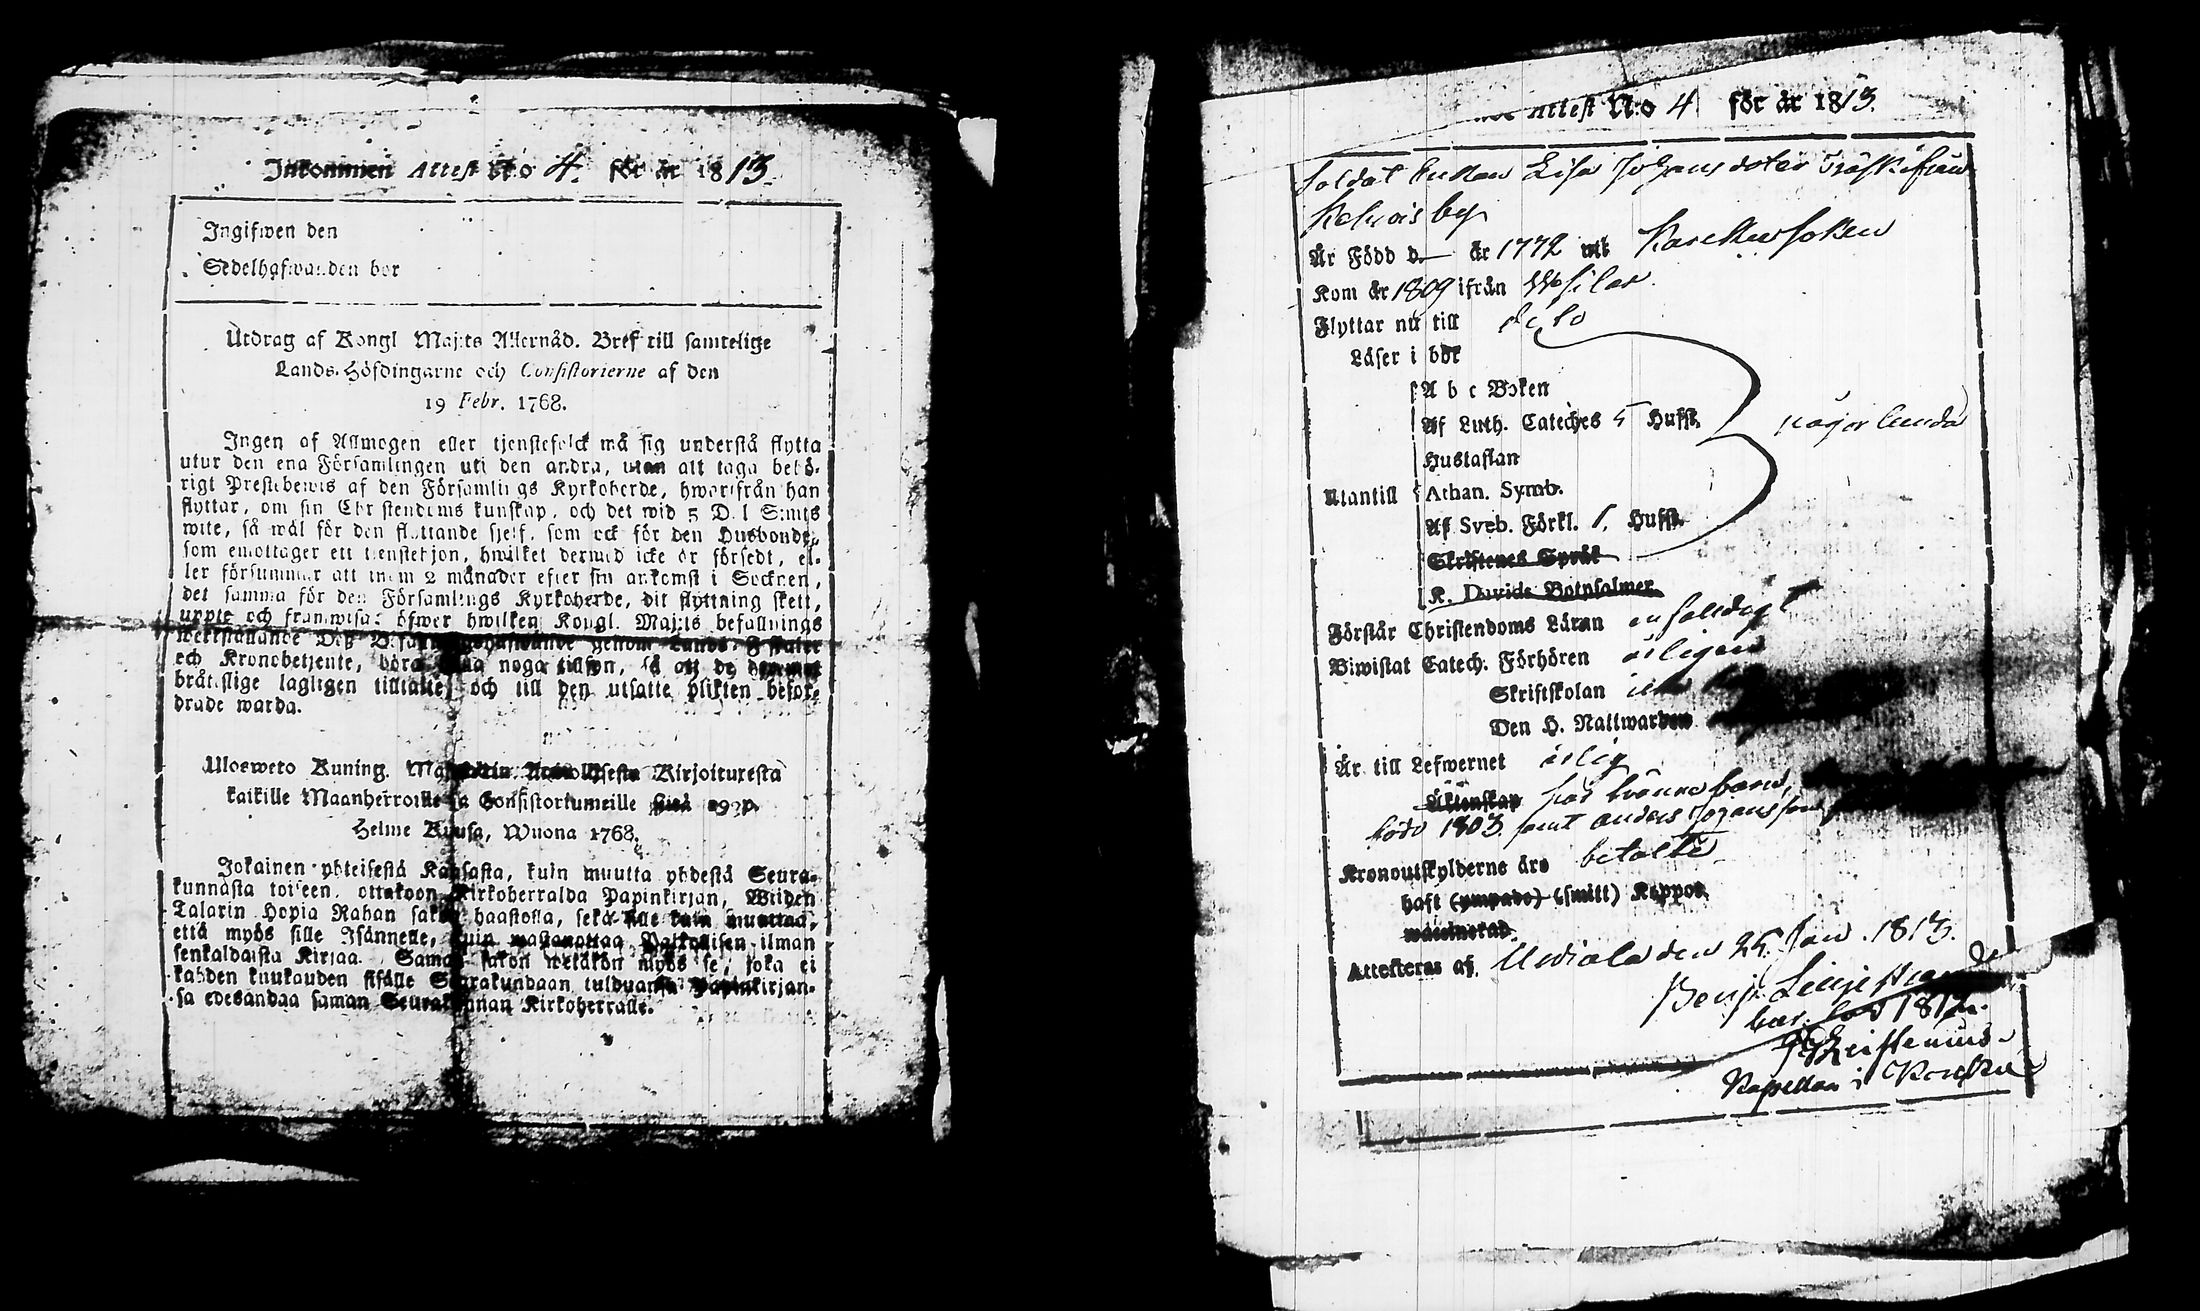 Inkommen Attest N:o 4. för år 1813.
Ingifwen den
Sedelhafwanden bor
Utdrag af Kongl Maj:ts Allernåd. Bref till samtelige
Lands-Höfdingarne och Consistorierne af den
19 Febr. 1768.
Ingen af Allmogen eller tjenstefolck må sig understå flytta
utur den ena Församlingen uti den andra, utan att taga behö-
rigt Prestebewis af den Församlings Kyrkoherde, hworifrån han
flyttar, om sin Christendoms kunskap, och det wid 5 D. S:mts
wite, så wäl för den flyttande sjelf, som ock för den Husbonde,
som emottager ett tienstehjon, hwilket dermed icke är försedt, el-
ler försummar att inom 2 månader efter sin ankomst i Socknen,
det samma för den Församlings Kyrkoherde, dit flyttning skett,
uppte och framwisa: öfwer hwilken Kongl. Maj:ts befallnings
werkställande
och Kronobetjente, böra noga tillsyn, så att de
bråtslige lagligen tilltalte, och till den utsatte plikten befor-
drade warda.
Ulosweto Kuning. Kirjoituxesta
kaikille Maanherroille ja Consistoriumeille
Helme Kuusa, Wuona 1768.
Jokainen yhteisestä Kansasta, kuin muutta yhdestä Seura-
kunnasta toiseen, ottakoon Kirkoherralda Papinkirjan, Wiiden
Talarin Hopia Rahan sakon haastolla, sekä sille kuin muuttaa,
että myös sille Isännelle, kuin wastanottaa Palkollisen ilman
senkaldaista Kirjaa. Saman sakon wetäkön myös se, joka ei
kahden kuukauden sisälle Seurakundaan tulduansa Papinkirjan-
sa edesandaa saman Seurakunnan Kirkoherralle.
Attest N:o 4 för år 1813.
Soldat Enkan Lisa Johansdoter Träsk ifrån
by
Är Född d. år 1772 uti
Kom år 1809 ifrån
Flyttar nu till
Läser i bok
A b c Boken
Af Luth. Cateches 5 Hufst. någorlunda
Hustaflan
Utantill Athan. Symb.
Af Sveb. Förkl. 1. Hufst.
Skriftenes Språk
K. Davids Botpsalmer
Förstår Christendoms Läran enfaldigt
Biwistat Catech. Förhören ärligen
Skriftskolan
Den H. Nattwarden
Är till Lefwernet ärlig
Äktenskap har tvänne barn,
född 1803 samt Anders Johansson
Kronoutskylderne äro betalte
haft (ympade) (smitt) Koppor
waccinerad
Attesteras af, Urdiala den 25. Jan. 1813.
Benj. Lilljestrand
1812.
Kapellan i